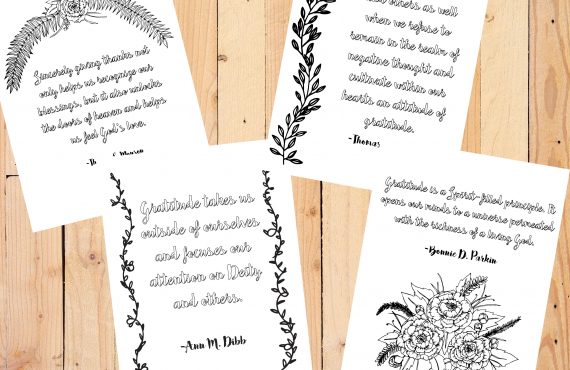 Sincerely giving thanks not
only helps us recognize our
blessings, but it also unlocks
the doors of heaven and helps
us feel God's love.
others as well
when we refuse to
remain in the realm of
negative thought and
cultivate within our
hearts an attitude of
gratitude.
-Thomas
Gratitude takes us
outside of ourselves
and focuses our
attention on Deity
and others.
-Ann M. Dibb
Gratitude is a Spirit-filled principle. It
opens our minds to a universe permeated
with the richness of a living God.
-Bonnie D. Parkin